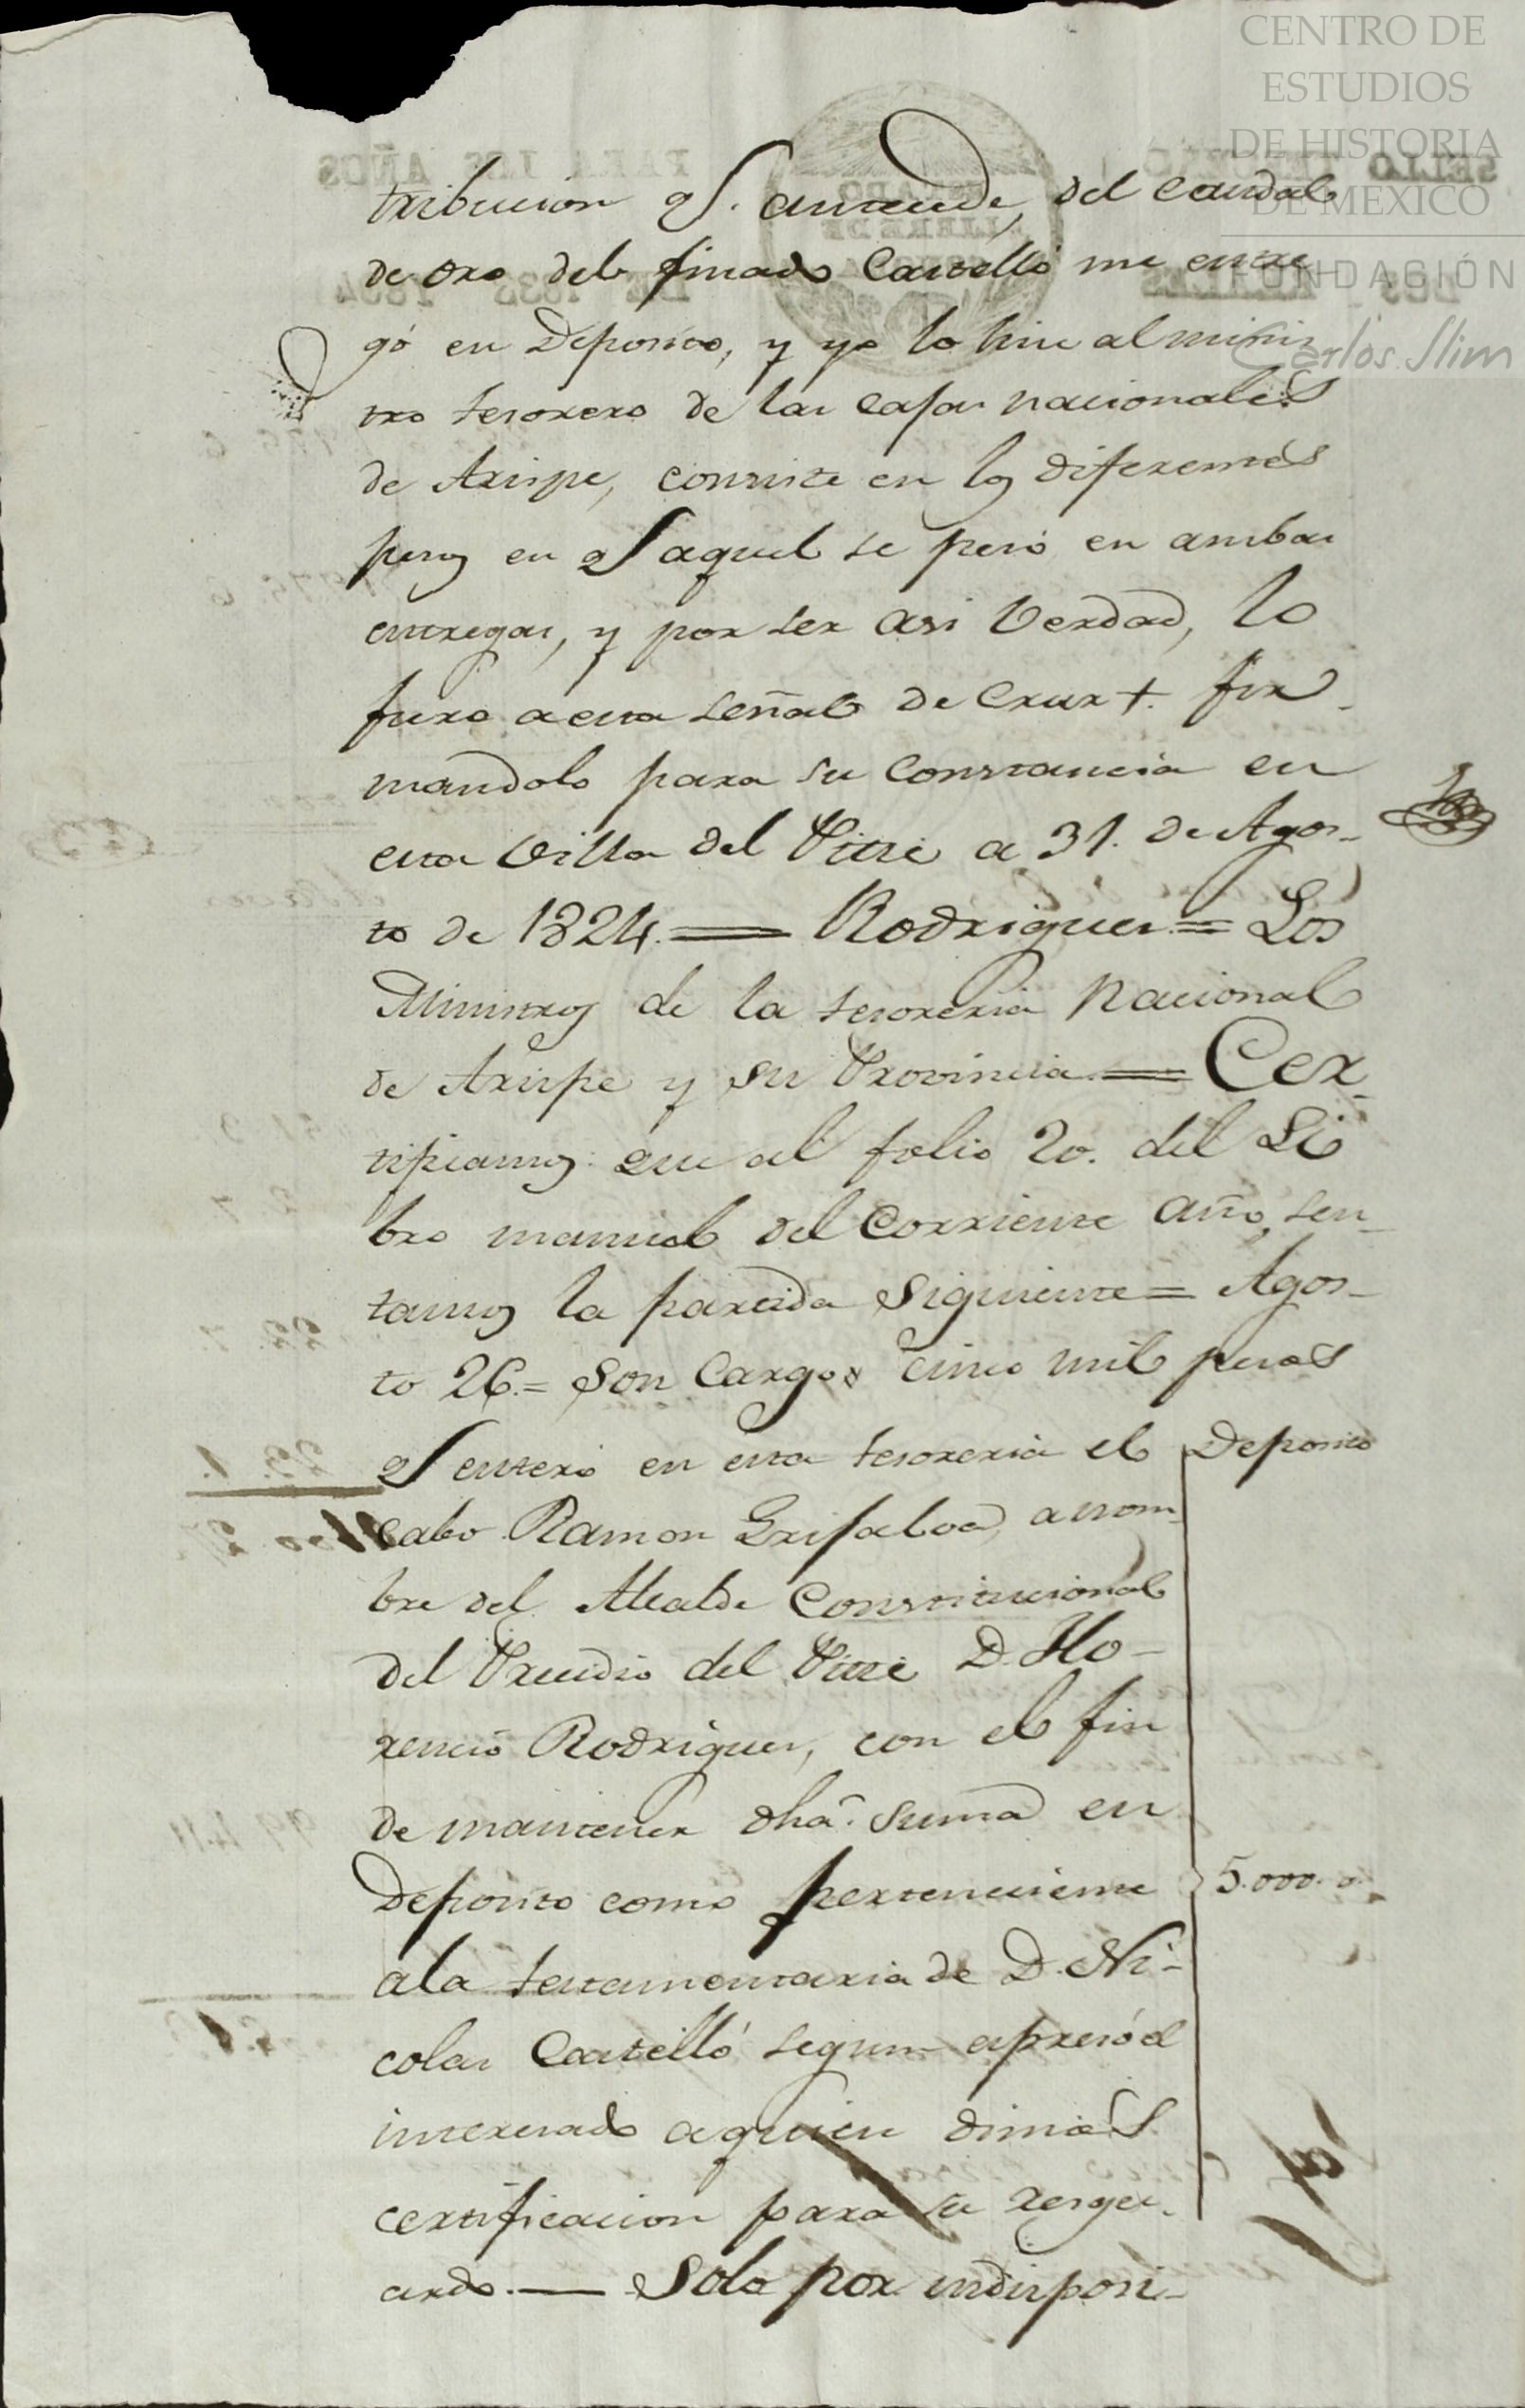 CENTRO DE
ESTUDIOS
DE HISTORIA
DE MEXICO
FUNDACIÓN
Carlos Slim
tribucion q. antecede, del caudal
de oro del finado Castelló me entre
gó en Deposito, y yo lo hice al minis
tro tesorero de las cajas nacionales
de Arispe, consiste en los diferentes
pesos en q aquel se pesó en ambas
entregas, y por ser asi verdad, lo
juro a esta señal de Cruz +. fir
mandolo para su constancia en
esta Villa del Pitic a 31. de Agos-
to de 1824. = Rodriguez = Los
Ministros de la tesoreria Nacional
de Arispe y su Provincia = Cer-
tificamos: que al folio 20. del Li
bro manual del Corriente año, sen-
tamos la partida siguiente = Agos-
to 26. = Son Cargos cinco mil pesos
q enteró en esta tesoreria el
Deposito
cabo Ramon Grijalva, a nom-
bre del Alcalde Constitucional
del Presidio del Pitic D. Flo-
rencio Rodriguez, con el fin
de mantener dha. suma en
Deposito como perteneciente
5.000..
a la testamentaria de D. Ni-
colas Castelló segun espresó el
interesado a quien dimos
certificacion para su resgu-
ardo. — Solo por indisposi-